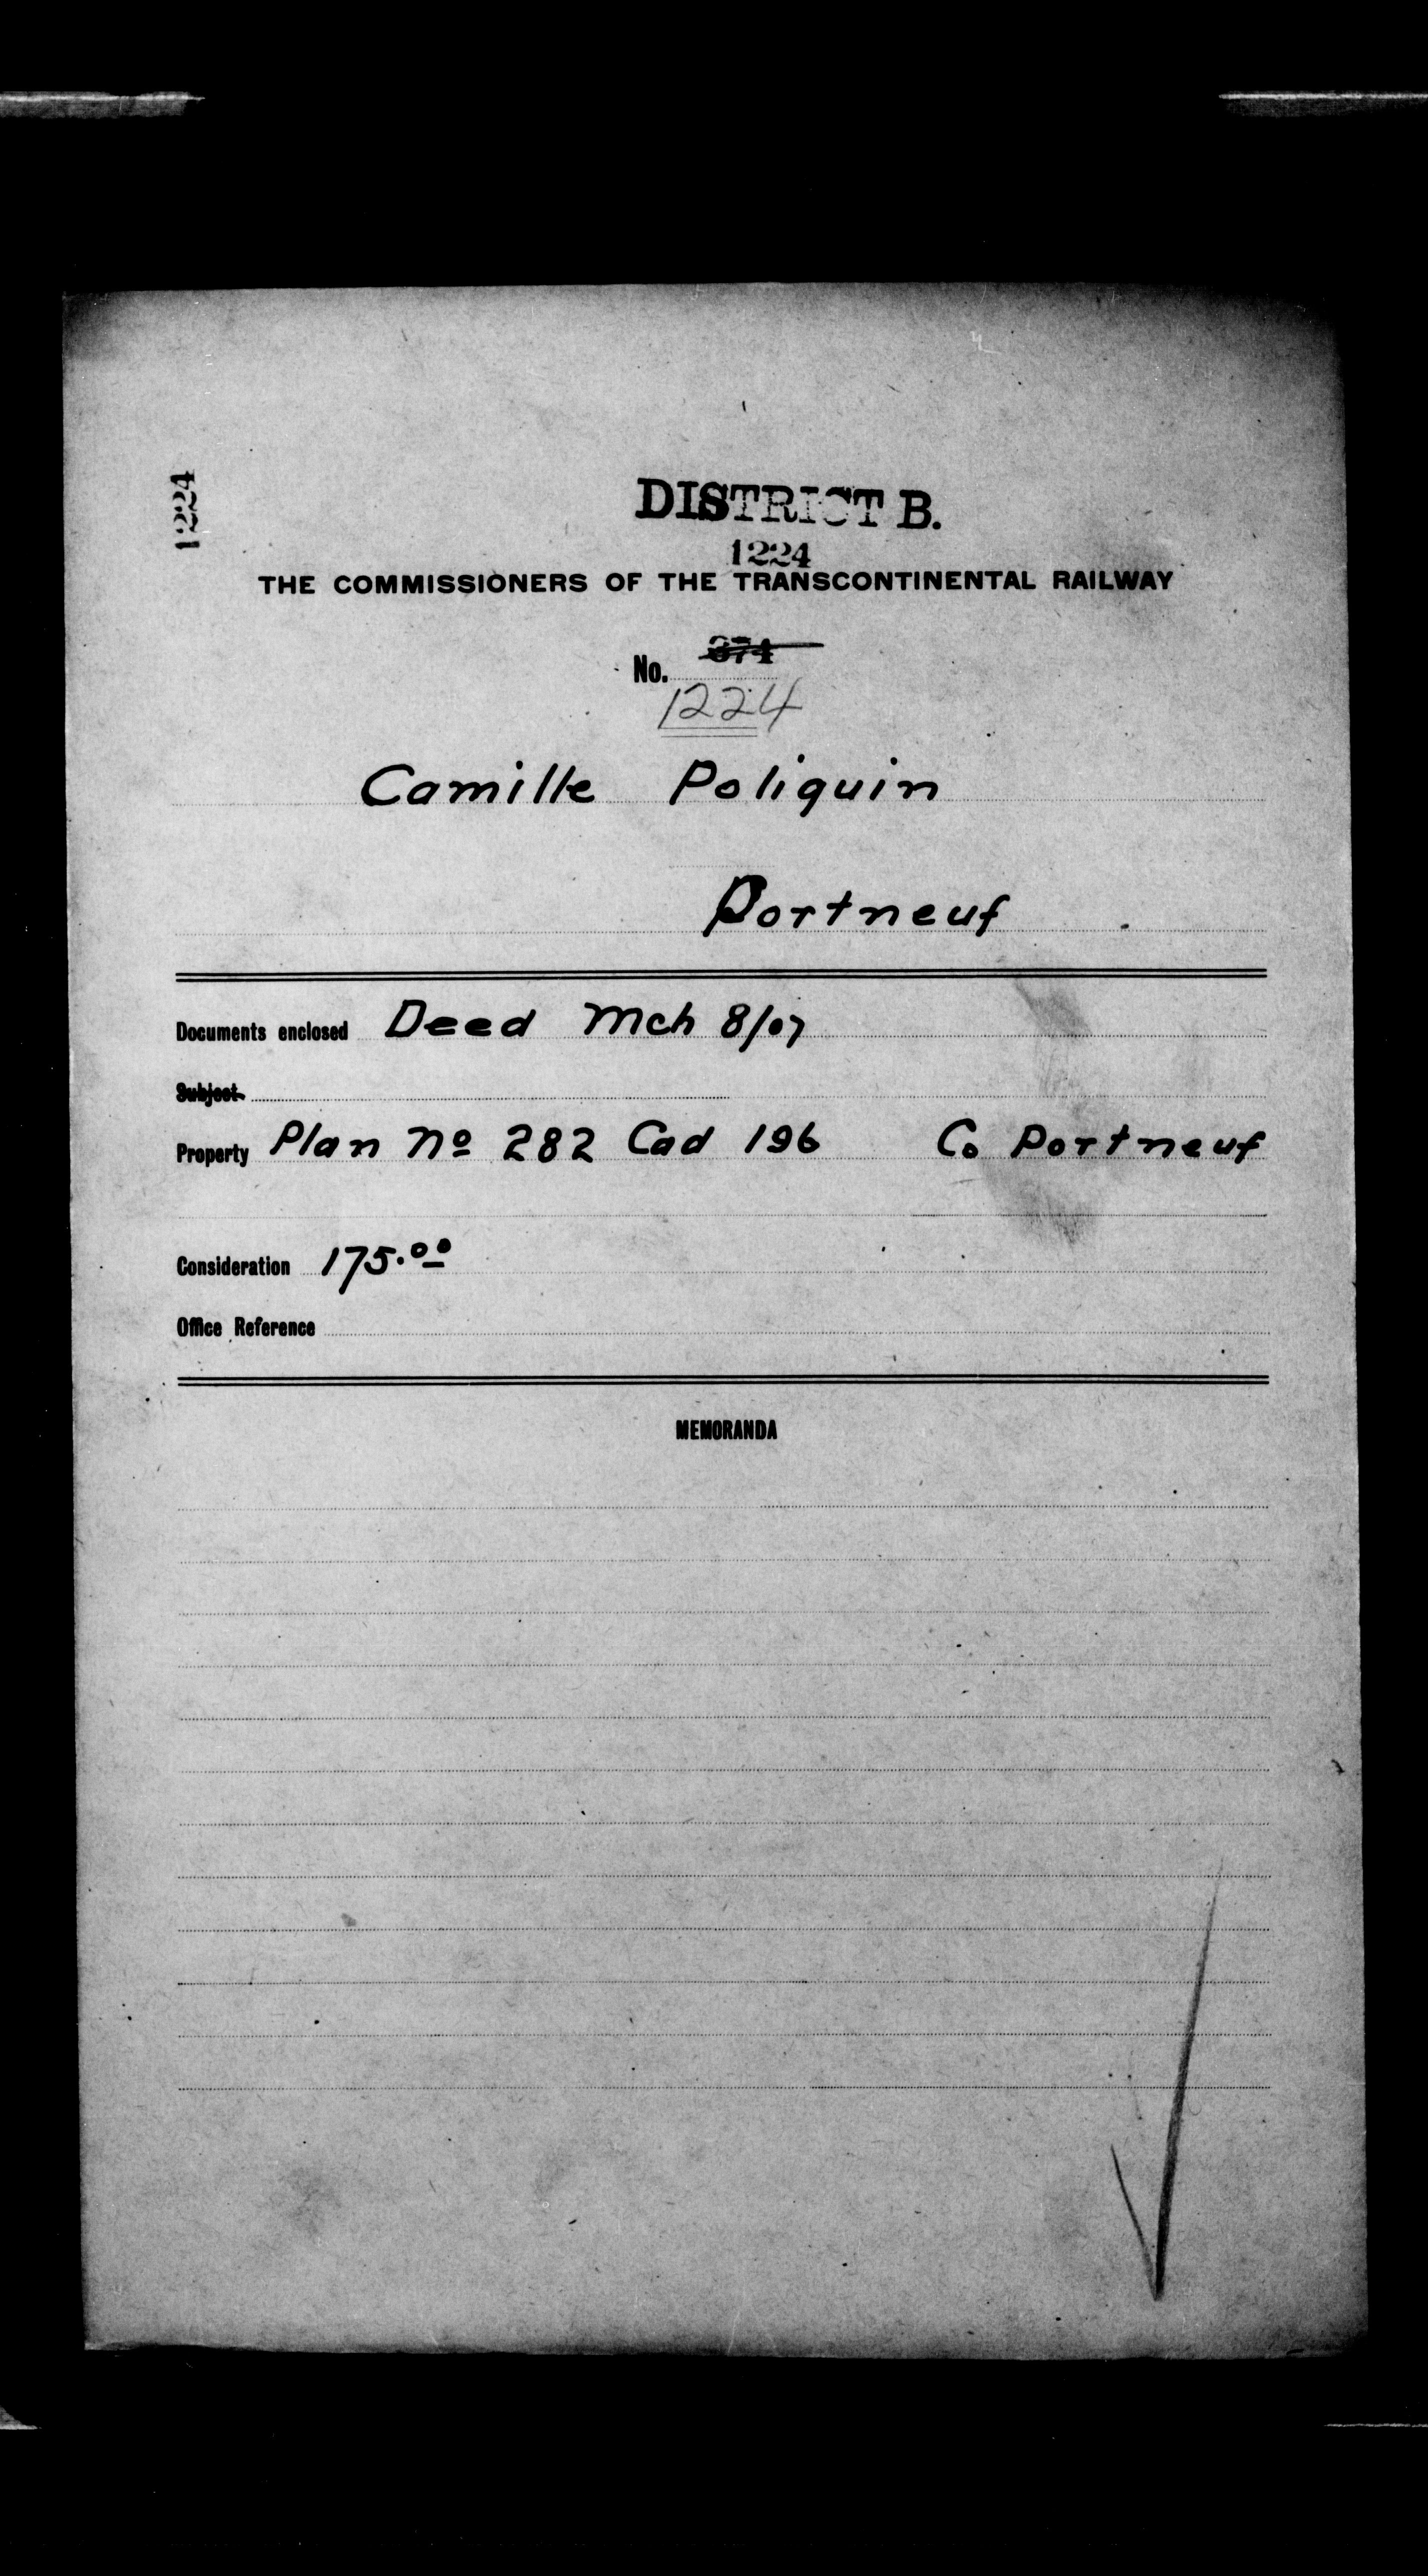 1224
DISTRICT B.
1224
THE COMMISSIONERS OF THE TRANSCONTINENTAL RAILWAY
No. 374
1224
Camille Poliquin
Portneuf
Documents enclosed Deed Mch 8/07
Subject
Property Plan No 282 Cad 196 Co Portneuf
Consideration 175.00
Office Reference
MEMORANDA